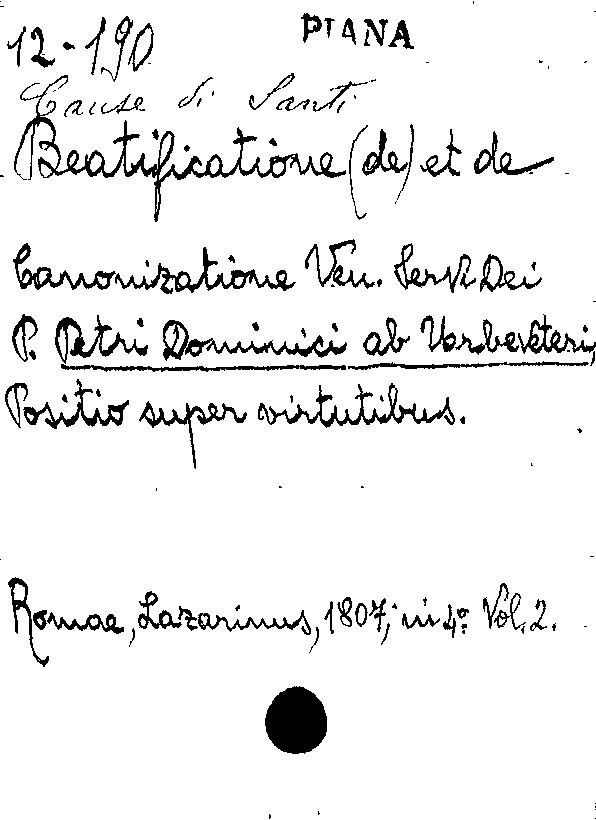 12-190 PIANA
Cause di Santi
Beatificatione (de) et de
Canonizatione Ven. Servi Dei
P. Petri Dominici ab
Positio super virtutibus.
Romae, Lazarinus, 1807; in 4º. Vol. 2.